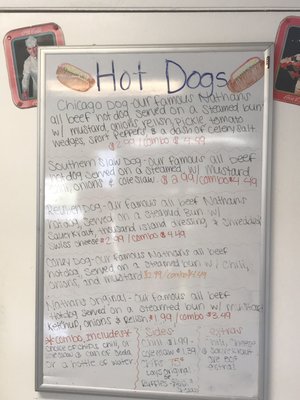 Hot Dogs
Chicago Dog - Our Famous Nathans
all beef hotdog Served on a Steamed bun
w/ mustard, onions, relish, pickle, tomato
wedges, sport peppers, & a dash of celery salt
$2.99 / combo $4.99
Southern Slaw Dog - Our Famous all beef
hotdog Served on a steamed w/ mustard
chili, onions & cole slaw $2.99/combo $4.49
Reuben Dog - Our Famous all beef Nathans
hotdog, Served on a Steamed Bun w/
Sauerkraut, thousand island dressing, & Shredded
Swiss cheese $2.99 / combo $4.49
Coney Dog - Our Famous Nathans all beef
hotdog Served on a steamed bun w/ chili,
onions, and mustard
Nathans Original - Our Famous all beef
Hotdog Served on a steamed bun w/ mustard
Ketchup, onions & relish $1.99 / combo $3.49
*combo includes*
choice of chips, chili, or
coleslaw & can of Soda
or a bottle of water
Sides
Chili $1.99
Coleslaw $1.39
Chips 75¢
Lays original
or
Ruffles
extras
Chili, Cheese
& Sauerkraut
extras